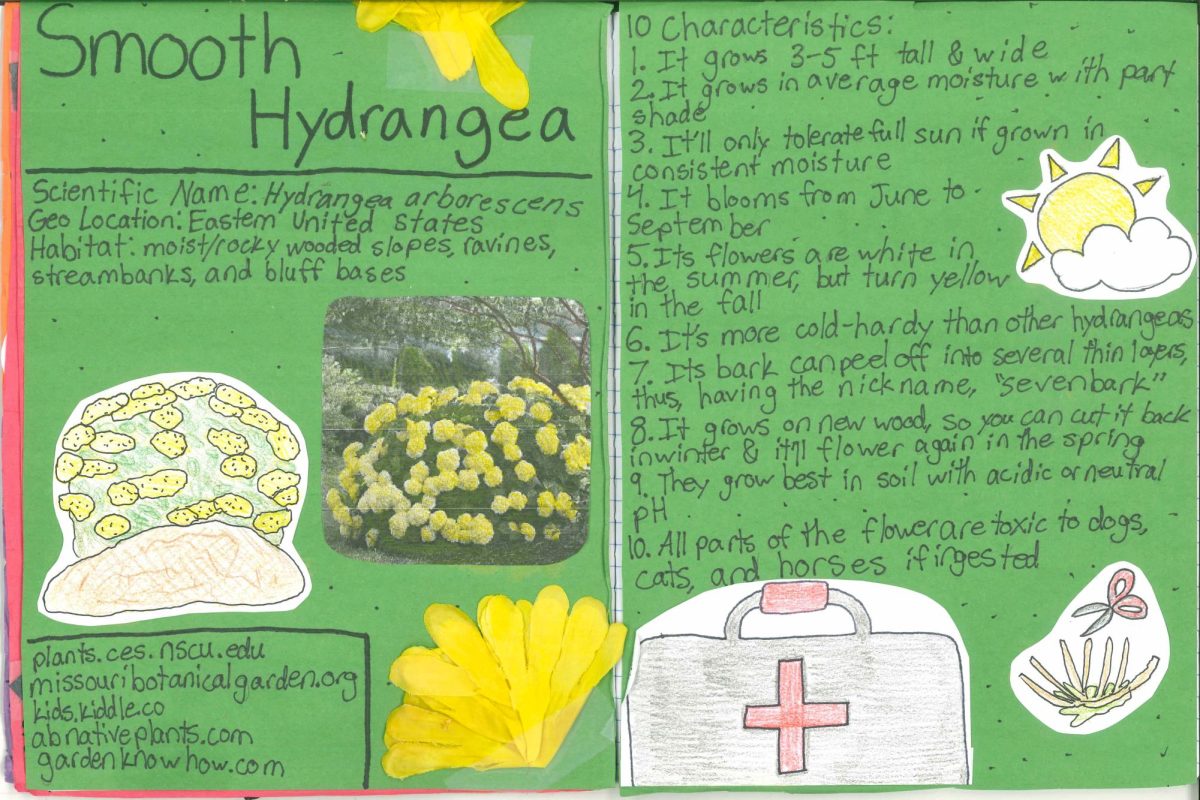 Smooth
Hydrangea
Scientific Name: Hydrangea arborescens
Geo Location: Eastern United States
Habitat: moist/rocky wooded slopes, ravines,
streambanks, and bluff bases
plants.ces.nscu.edu
missouribotanicalgarden.org
kids.kiddle.co
abnativeplants.com
gardenknowhow.com
10 Characteristics:
1. It grows 3-5 ft tall & wide
2. It grows in average moisture with part
shade
3. It'll only tolerate full sun if grown in
consistent moisture
4. It blooms from June to
September
5. Its flowers are white in
the summer, but turn yellow
in the fall
6. It's more cold-hardy than other hydrangeas
7. Its bark can peel off into several thin layers,
thus, having the nickname, "sevenbark"
8. It grows on new wood, so you can cut it back
in winter & it'll flower again in the spring
9. They grow best in soil with acidic or neutral
pH
10. All parts of the flower are toxic to dogs,
cats, and horses if ingested